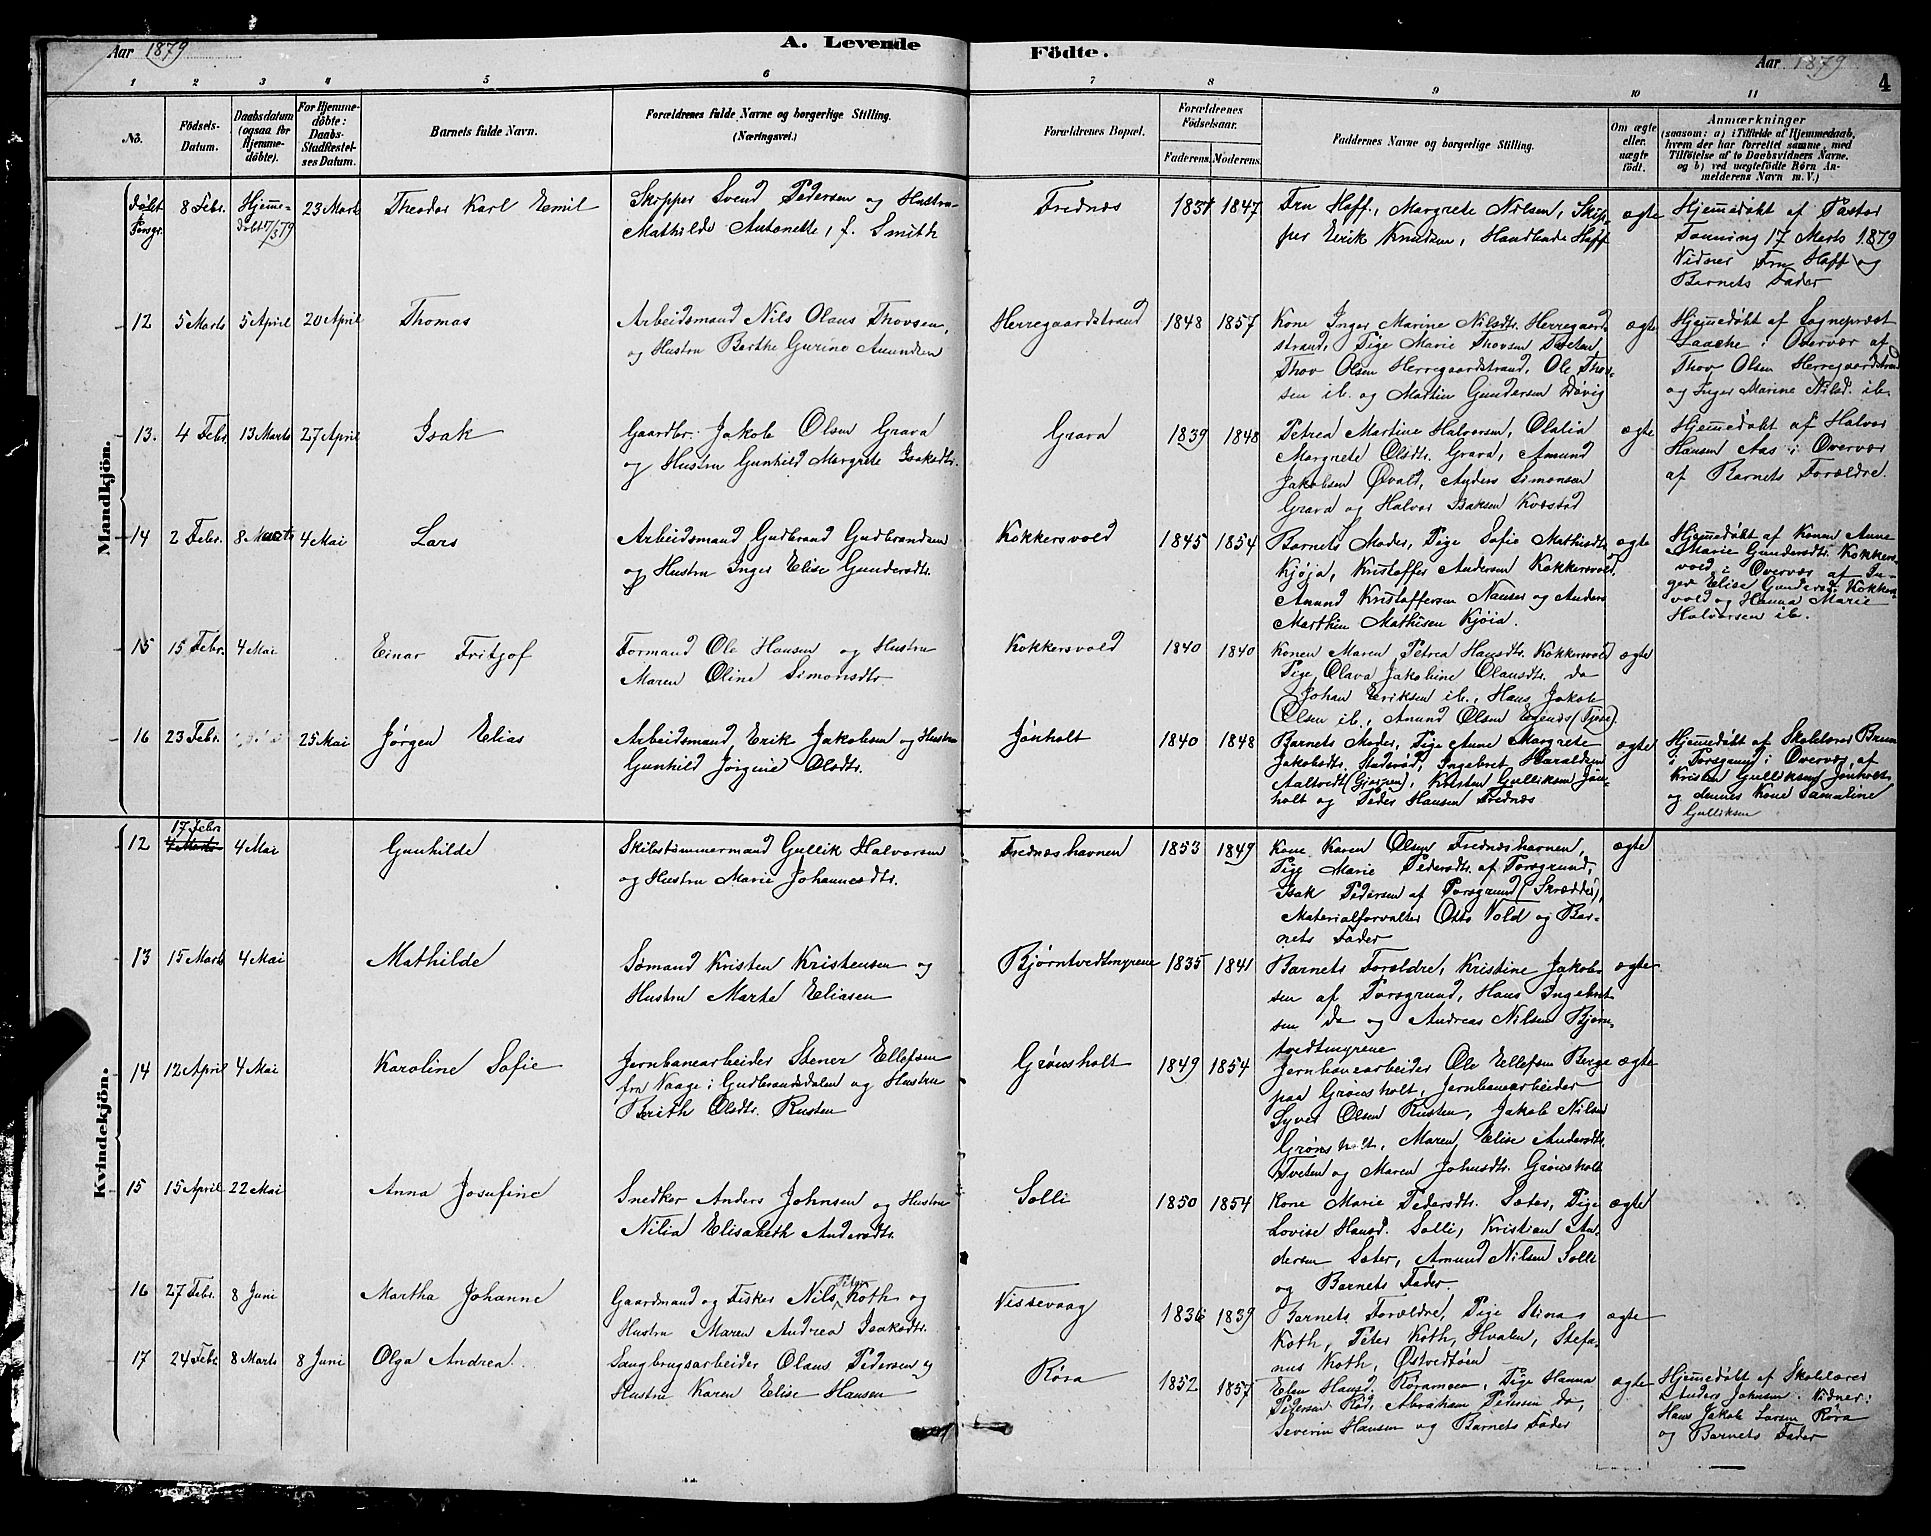 Aar 1879
A. Levende Födte.
Aar 1879
4
1 2 3 4 5 6 7 8 9 10 11
No.
Födsels-Datum.
Daabsdatum (ogsaa for Hjemmedöbte).
For Hjemmedöbte: Daabs-Stadfæstelses Datum.
Barnets fulde Navn.
Forældrenes fulde Navne og borgerlige Stilling. (Næringsvei.)
Forældrenes Bopæl.
Forældrenes Födselsaar.
Faderens. Moderens.
Faddernes Navne og borgerlige Stilling.
Om ægte eller uægte födt.
Anmærkninger
(saasom: a) i Tilfælde af Hjemmedaab, hvem der har forrettet samme, med Tilföielse af to Daabsvidners Navne. og b) ved uægtefödte Börn Anmelderens Navn m. V.)
Mandkjön.
Døbt Porsgr. 8 Febr. Hjemmedøbt 17/3 79 23 Marts Theodor Karl Emil
Skipper Svend Pedersen og Hustru
Mathilde Antonette, f. Smith
Frednæs 1831 1847
Fru Hoff, Margrete Nilsen, Skip-
per Eirik Knudsen, Handlende Hoff
ægte
Hjemmedøbt af Pastor
Tønning 17 Marts 1879
Vidner Fru Hoff og
Barnets Fader
12 5 Marts 5 April 20 April Thomas
Arbeidsmand Nils Olaus Thovsen,
og Hustru Berthe Gurine Amundsen
Herregaardstrand 1848 1857
Kone Inger Marine Nilsdtr. Herregaard-
strand, Pige Marie Thovsen Tveten,
Thov Olsen Herregaardstrand, Ole Thov-
sen ib. og Martin Gundersen Døvig
ægte
Hjemmedøbt af Sognepræst
Laache i Overvær af
Thov Olsen Herregaardstrand
og Inger Marine Nilsd. ib.
13. 4 Febr. 13 Marts 27 April Isak
Gaardbr. Jakob Olsen Grava
og Hustru Gunhild Margrete Isaksdtr.
Grava 1839 1848
Petrea Martine Halvorsen, Olalia
Margrete Olsdtr. Grava, Amund
Jakobsen Øvald, Anders Simonsen
Grava og Halvor Isaksen Kvæstad
ægte
Hjemmedøbt af Halvor
Hansen Aas i Overvær
af Barnets Forældre.
14 2 Febr. 8 Marts 4 Mai Lars
Arbeidsmand Gudbrand Gudbrandsen
og Hustru Inger Elise Gundersdtr.
Kokkersvold 1845 1854
Barnets Moder, Pige Sofie Mathisdtr.
Kjøja, Kristoffer Andersen Kokkersvold,
Amund Kristoffersen Nanset og Anders
Marthin Mathisen Kjøia.
ægte
Hjemmedøbt af Konen Anne
Marie Gundersdtr. Kokkers-
vold i Overvær af In-
ger Elise Gundersd. Kokkers-
vold og Hanna Marie
Halvorsen ib.
15 15 Febr. 4 Mai Einar Fritjof
Formand Ole Hansen og Hustru
Maren Oline Simonsdtr.
Kokkersvold 1840 1840
Konen Maren Petrea Hansdtr. Kokkersvold
Pige Olava Jakobine Olausdtr. do
Johan Eriksen ib., Hans Jakob
Olsen ib., Amund Olsen
ægte
16 23 Febr. 25 Mai Jørgen Elias
Arbeidsmand Erik Jakobsen og Hustru
Gunhild Jørgine Olsdtr.
Jønholt 1840 1848
Barnets Moder, Pige Anne Margrete
Jakobsdtr. Ingebret Haraldsen
Aaltvedt (Gjerpen), Kristen Gulliksen Jøn-
holt og Peder Hansen Frednæs
ægte
Hjemmedøbt af Skolelærer Bruun
i Porsgrund i Overvær af
Kristen Gulliksen Jønholt
og dennes Kone Tomatine
Gulliksen
Kvindekjön.
12 17 Febr 4 Marts 4 Mai Gunhilde
Skibstømmermand Gullik Halvorsen
og Hustru Marie Johannesdtr.
Frednæshavnen 1853 1849
Kone Karen Olsen Frednæshavnen,
Pige Marie Pedersdtr. af Porsgrund,
Isak Pedersen af Porsgrund (Skrædder),
Materialforvalter Otto Vold og Bar-
nets Fader
ægte
13 15 Marts 4 Mai Mathilde
Sømand Kristen Kristensen og
Hustru Marte Eliasen
Bjørntvedtmyrene 1835 1841
Barnets Forældre, Kristine Jakob-
sen af Porsgrund, Hans Ingebret-
sen do og Andreas Nilsen Bjørn-
tvedtmyrene
ægte
14 12 April 4 Mai Karoline Sofie
Jernbanearbeider Stener Ellefsen
fra Vaage i Gudbrandsdalen og Hustru
Berith Olsdtr. Rusten
Grønsholt 1849 1854
Jernbanearbeider Ole Ellefsen Berge
paa Grønsholt, Jernbanearbeider
Syver Olsen Rusten, Jakob Nilsen
Grønsholt, Maren Elise Andersdtr.
Tveten og Maren Johnsdtr. Grønsholt
ægte
15 15 April 22 Mai Anna Josefine
Snedker Anders Johnsen og Hustru
Nilia Elisabeth Andersdtr.
Solli 1850 1854
Kone Marie Pedersdtr. Sæter, Pige
Lovise Hansd. Solli, Kristian An-
dersen Sæter, Amund Nilsen Solli
og Barnets Fader.
ægte
16 27 Febr. 8 Juni Martha Johanne
Gaardmand og Fisker Nils Peter Koth og
Hustru Maren Andrea Isaksdtr.
Vissevaag 1836 1839
Barnets Forældre, Pige Stina
Koth, Peter Koth, Hvalen, Stefa-
nus Koth, Østvedtøen
ægte
17 24 Febr 8 Marts 8 Juni Olga Andrea.
Saugbrugsarbeider Olaus Pedersen og
Hustru Karen Elise Hansen
Røra 1852 1857
Elen Hansd. Røramoen, Pige Hanna
Pedersen Rød, Abraham Pedersen do,
Severin Hansen og Barnets Fader
ægte
Hjemmedøbt af Skolelærer
Anders Johnsen. Vidner:
Hans Jakob Larsen Røra
og Barnets Fader